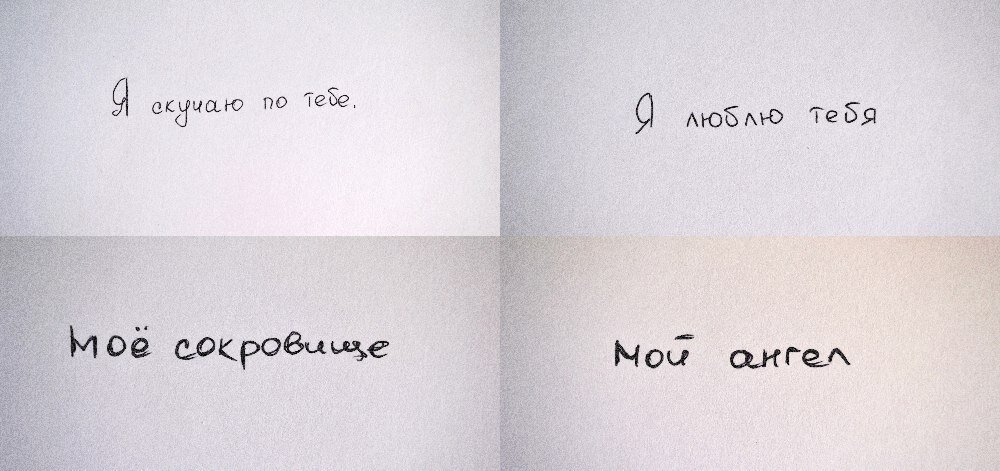 Я скучаю по тебе.
Я люблю тебя
Моё сокровище
Мой ангел